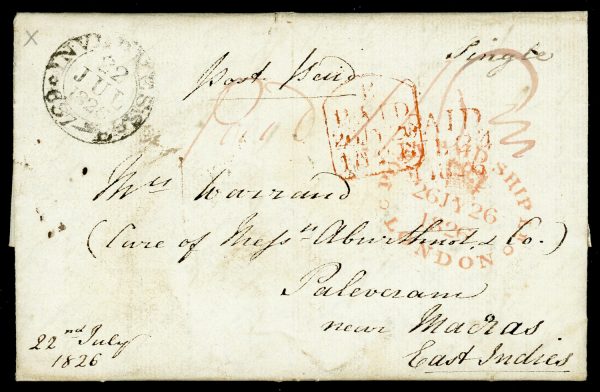 x
INVERNESS
22
JUL
1826
Post Paid
Single
Paid
PAID
1826
PAID
1826
SHIP LR
26 JY 26
1826
LONDON
Mrs Warrand
(Care of Messrs Aburthnot, & Co.)
Palaveram
near Madras
East Indies
22nd July
1826